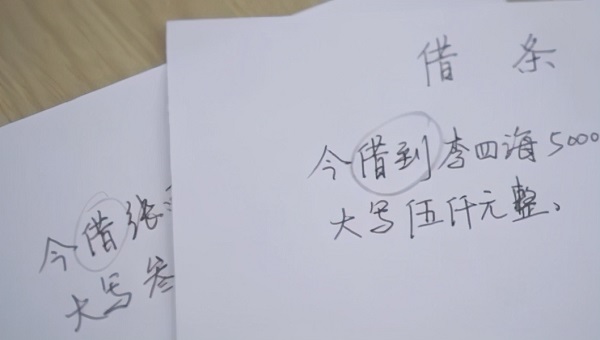 借条
今借到李四海5000
大写伍仟元整、
今借张
大写叁